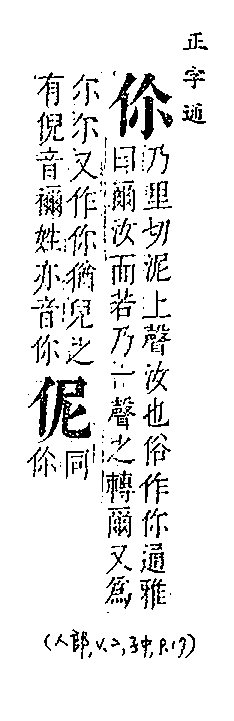 正字通
伱
乃里切泥上聲汝也俗作你通雅
曰爾汝而若乃一聲之轉爾又為
尔尔又作你猶兒之
有倪音禰姓亦音你
伲
同
伱
(人部, V.2, 子中, P.17)